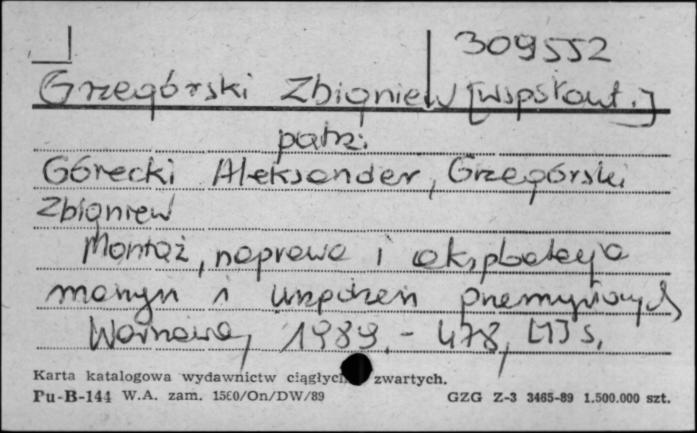 309552
Grzegórski Zbigniew [współaut.]
patrz:
Górecki Aleksander, Grzegórski
Zbigniew
Montaż, naprawa i eksploatacja
maszyn i urządzeń przemysłowych
Warszawa, 1989. - 478, [1] s.
Karta katalogowa wydawnictw ciągłych zwartych.
Pu-B-144 W.A. zam. 1560/On/DW/89 GZG Z-3 3465-89 1.500.000 szt.